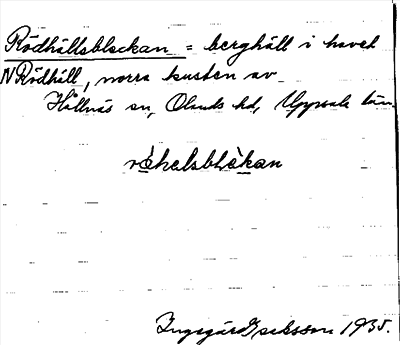 Rödhällsblackan = berghäll i havet
N Rödhäll, norra kusten av
Hållnäs sn, Olands hd, Uppsala län
Ingegärd Eriksson 1935.